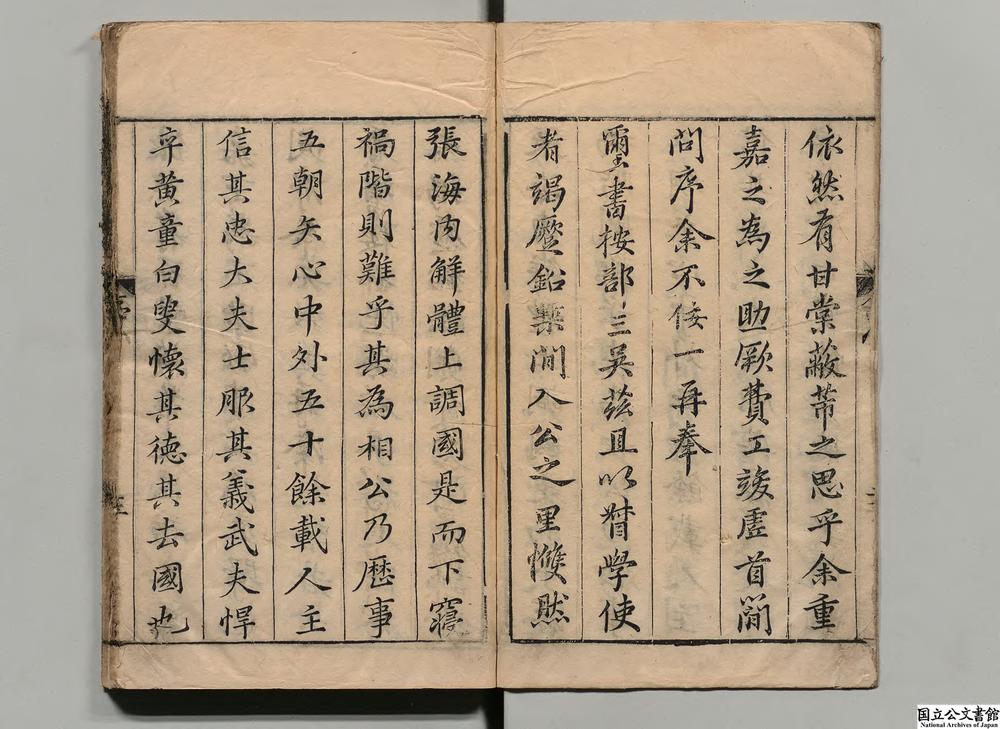 依然有甘棠蔽芾之思乎余重
嘉之為之助厥費工竣虛首簡
問序余不佞一再奉
璽書按部三吳茲且以督學使
者竭蹷鉛槧間入公之里愯然
張海內解體上調國是而下寢
禍階則難乎其為相公乃歷事
五朝矢心中外五十餘載人主
信其忠大夫士服其義武夫悍
卒黃童白叟懷其德其去國也
国立公文書館
National Archives of Japan